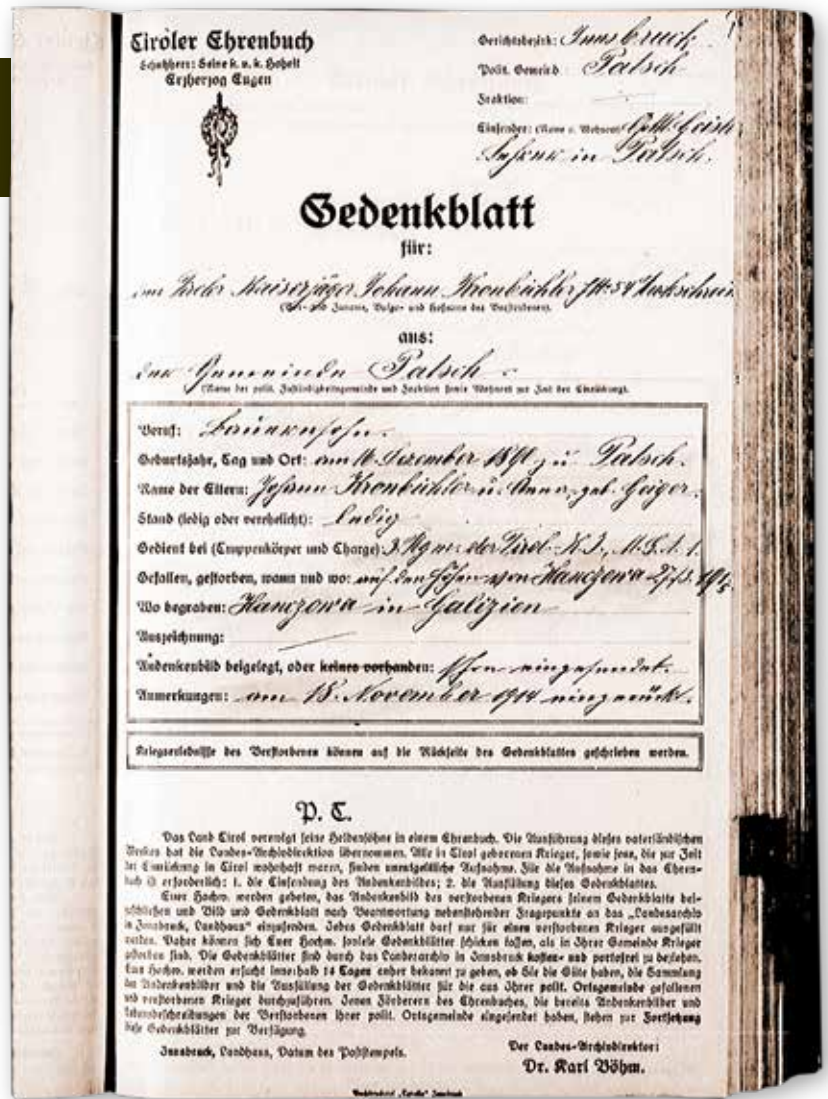 Tiroler Ehrenbuch
Schutzherr: Seine k. u. k. Hoheit
Erzherzog Eugen
Gerichtsbezirk: Innsbruck
Polit. Gemeind Patsch
Fraktion:
Einsender: (Name u. Wohnort)
in Patsch.
Gedenkblatt
für:
Kaiserjäger Johann Kronbichler
(Vor- und Zuname, Vulgo- und Hofname des Verstorbenen).
aus:
der Gemeinde Patsch
(Name der polit. Zuständigkeitsgemeinde und Fraktion sowie Wohnort zur Zeit der Einrückung).
Beruf: Bauernsohn.
Geburtsjahr, Tag und Ort: am Dezember zu Patsch.
Name der Eltern: Johann Kronbichler u. Anna, geb. Geiger.
Stand (ledig oder verehelicht): Ledig
Gedient bei (Truppenkörper und Charge): 3. der Tirol. K. J.,
Gefallen, gestorben, wann und wo: auf den Höhen von Hanczowa
Wo begraben: Hanczowa in Galizien
Auszeichnung:
Andenkenbild beigelegt, oder keines vorhanden: schon eingesendet.
Anmerkungen: am 15. November 1914 eingerückt.
Kriegserlebnisse des Verstorbenen können auf die Rückseite des Gedenkblattes geschrieben werden.
P. T.
Das Land Tirol verewigt seine Heldensöhne in einem Ehrenbuch. Die Ausführung dieses vaterländischen
Werkes hat die Landes-Archivdirektion übernommen. Alle in Tirol geborenen Krieger, sowie jene, die zur Zeit
der Einrückung in Tirol wohnhaft waren, finden unentgeltliche Aufnahme. Für die Aufnahme in das Ehren-
buch ist erforderlich: 1. die Einsendung des Andenkenbildes; 2. die Ausfüllung dieses Gedenkblattes.
Euer Hochw. werden gebeten, das Andenkenbild des verstorbenen Kriegers seinem Gedenkblatte bei-
zuschließen und Bild und Gedenkblatt nach Beantwortung nebenstehender Fragepunkte an das „Landesarchiv
in Innsbruck, Landhaus" einzusenden. Jedes Gedenkblatt darf nur für einen verstorbenen Krieger ausgefüllt
werden. Daher können sich Euer Hochw. soviele Gedenkblätter schicken lassen, als in Ihrer Gemeinde Krieger
gestorben sind. Die Gedenkblätter sind durch das Landesarchiv in Innsbruck kosten- und portofrei zu beziehen.
Eur Hochw. werden ersucht innerhalb 14 Tagen anher bekannt zu geben, ob Sie die Güte haben, die Sammlung
der Andenkenbilder und die Ausfüllung der Gedenkblätter für die aus Ihrer polit. Ortsgemeinde gefallenen
und verstorbenen Krieger durchzuführen. Jenen Förderern des Ehrenbuches, die bereits Andenkenbilder und
Lebensbeschreibungen der Verstorbenen Ihrer polit. Ortsgemeinde eingesendet haben, stehen zur Fortsetzung
diese Gedenkblätter zur Verfügung.
Innsbruck, Landhaus, Datum des Poststempels.
Der Landes-Archivdirektor:
Dr. Karl Böhm.